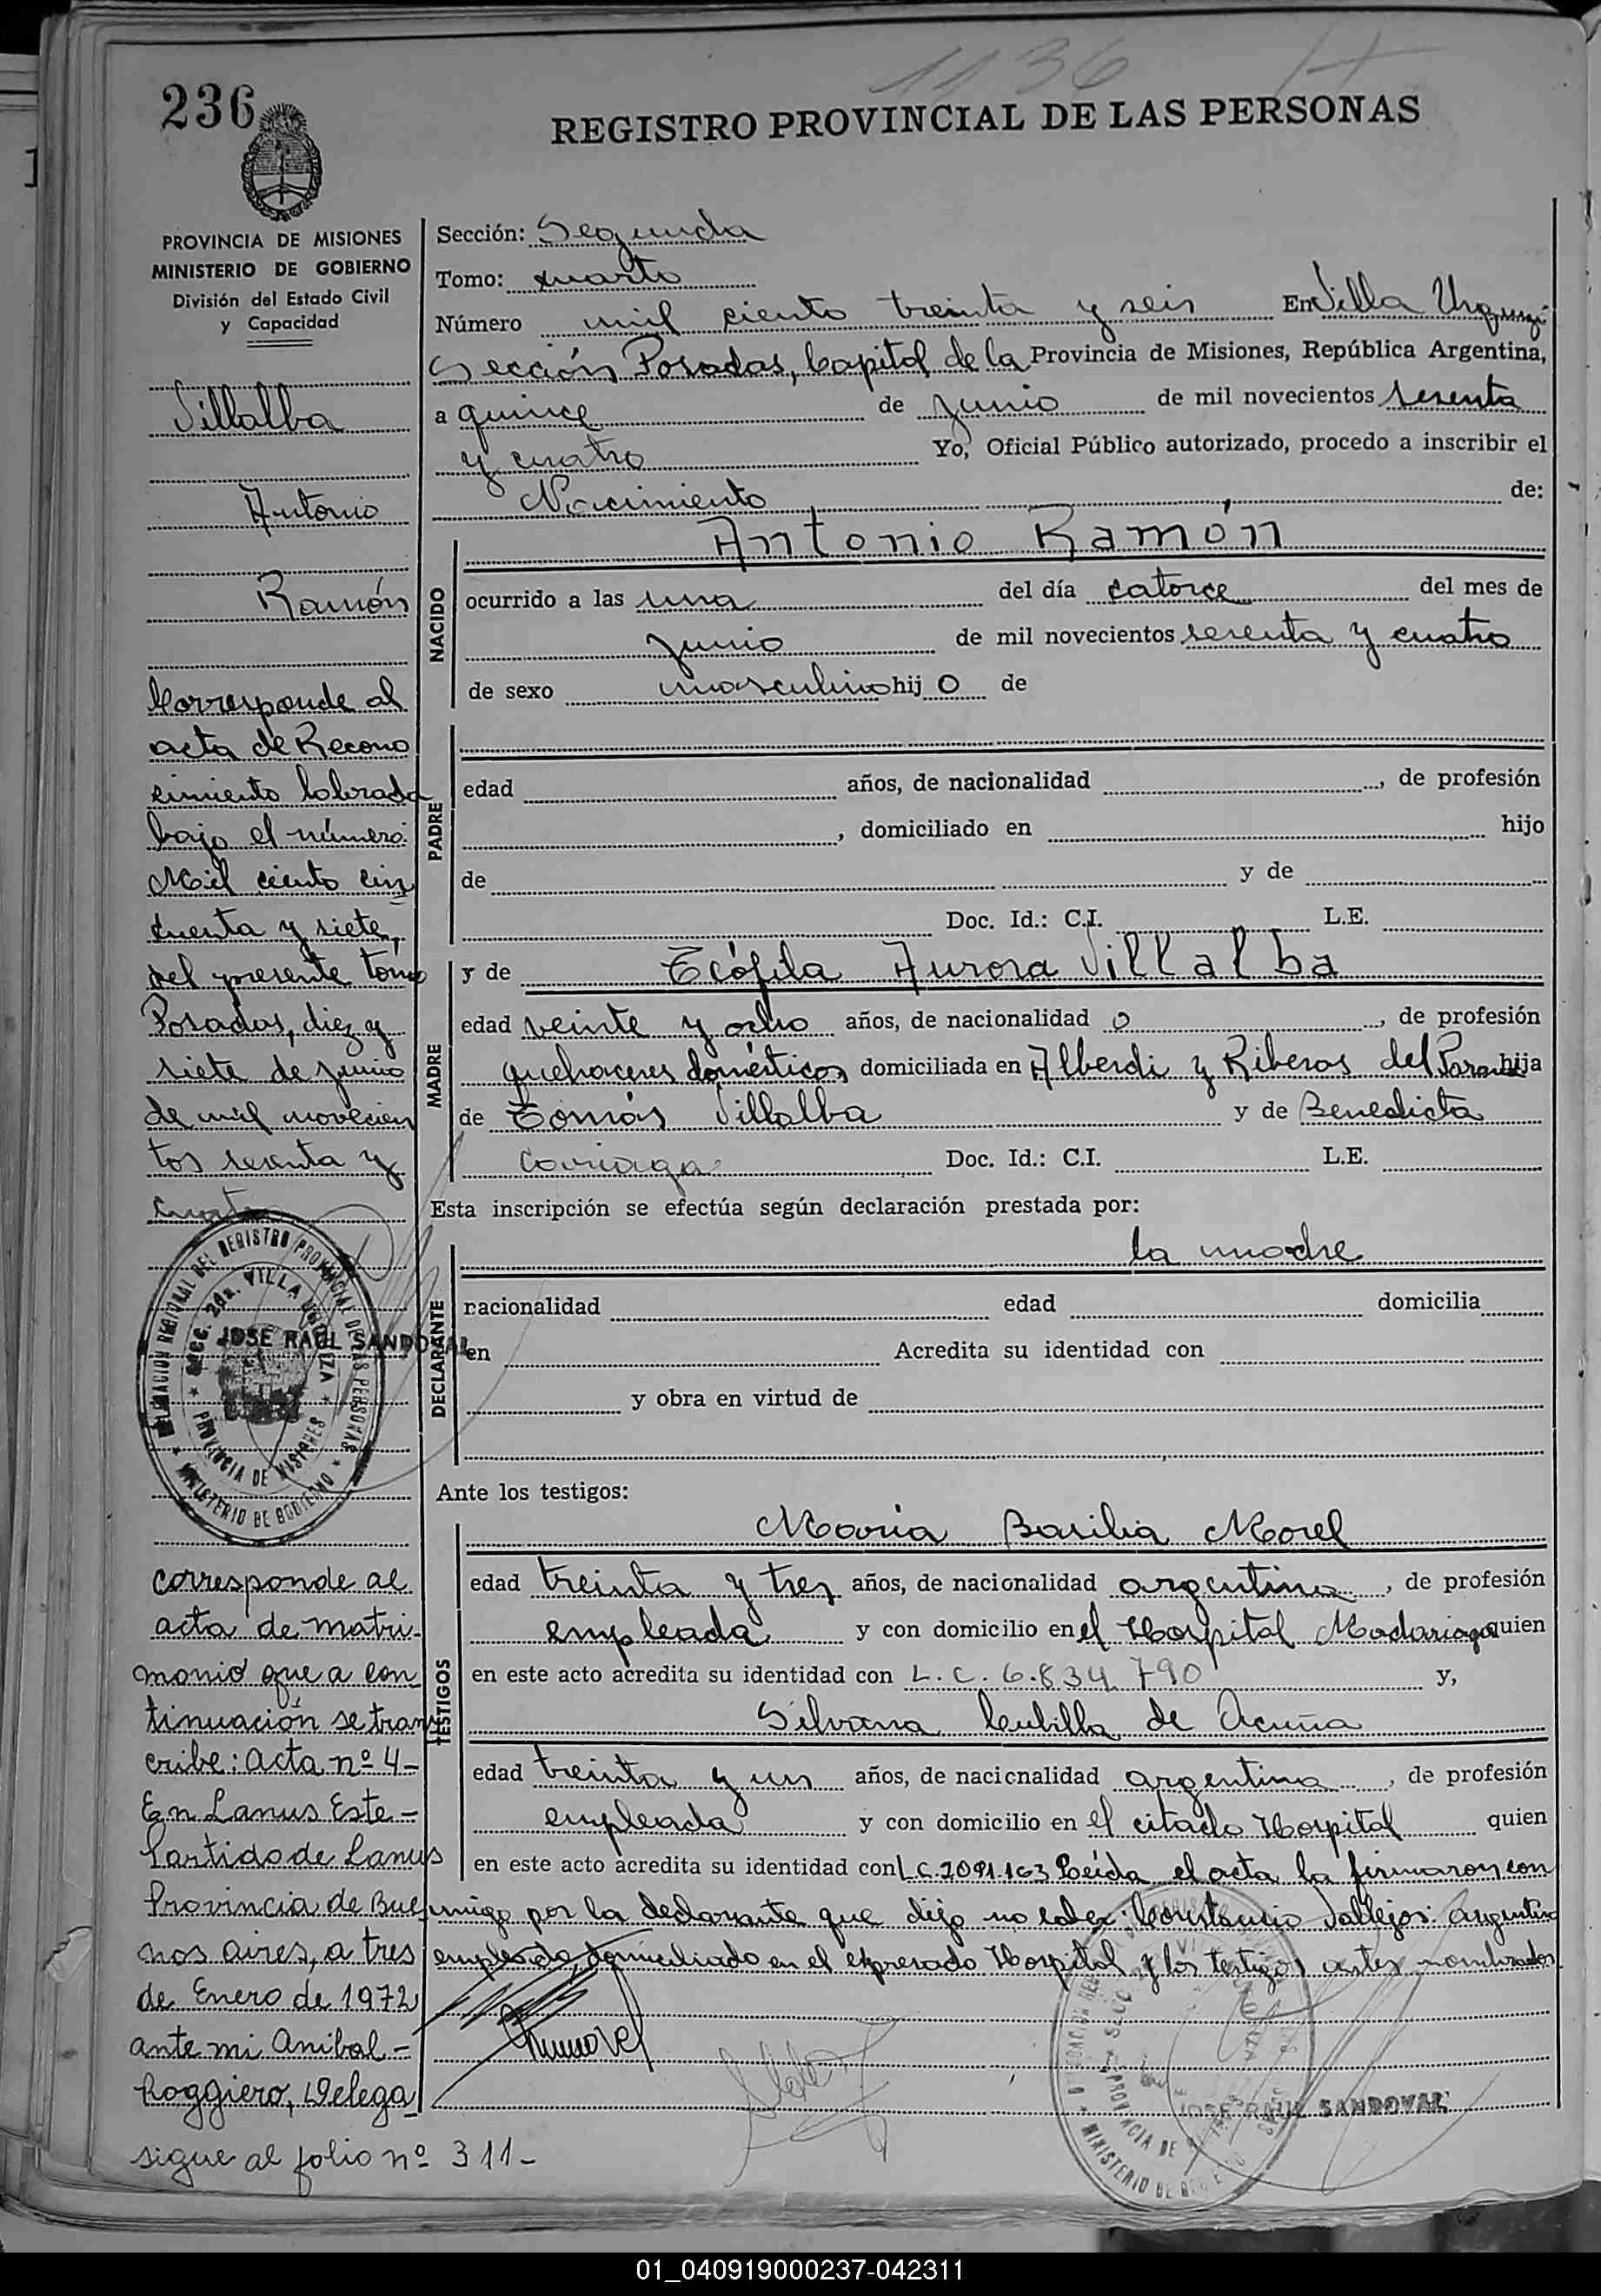 1136
236
REGISTRO PROVINCIAL DE LAS PERSONAS
PROVINCIA DE MISIONES
MINISTERIO DE GOBIERNO
División del Estado Civil
y Capacidad
Villalba
Antonio
Ramón
Corresponde al
acta de Recono
cimiento labrada
bajo el número:
Mil ciento cin
cuenta y siete,
del presente tomo
Posadas, diez y
siete de junio
de mil novecien
tos sesenta y
cuatro
DELEGACION REGIONAL DEL REGISTRO PROVINCIAL DE LAS PERSONAS
SECC. 2da. VILLA URQUIZA
PROVINCIA DE MISIONES
MINISTERIO DE GOBIERNO
JOSE RAUL SANDOVAL
corresponde al
acta de matri-
monio que a con
tinuación se trans
cribe: acta nº 4-
En Lanus Este-
Partido de Lanus
Provincia de Bue
nos aires, a tres
de Enero de 1972
ante mi Anibal-
Roggiero, Delega
sigue al folio nº 311-
Sección: Segunda
Tomo: cuarto
Número mil ciento treinta y seis En Villa Urquiza
Sección Posadas, Capital de la Provincia de Misiones, República Argentina,
a quince de junio de mil novecientos sesenta
y cuatro Yo, Oficial Público autorizado, procedo a inscribir el
Nacimiento de:
NACIDO
Antonio Ramón
ocurrido a las una del día catorce del mes de
junio de mil novecientos sesenta y cuatro
de sexo masculino hij o de
PADRE
edad años, de nacionalidad , de profesión
, domiciliado en hijo
de y de
Doc. Id.: C.I. L.E.
MADRE
y de Teófila Aurora Villalba
edad veinte y ocho años, de nacionalidad o , de profesión
quehaceres domésticos domiciliada en Alberdi y Riberas del Paraná hija
de Tomás Villalba y de Benedicta
Doc. Id.: C.I. L.E.
Esta inscripción se efectúa según declaración prestada por:
DECLARANTE
la madre
nacionalidad edad domicilia
en Acredita su identidad con
y obra en virtud de
Ante los testigos:
TESTIGOS
María Basilia Morel
edad treinta y tres años, de nacionalidad argentina , de profesión
empleada y con domicilio en el Hospital Madariaga quien
en este acto acredita su identidad con L.C. 6.834.790 y,
Silvana Cubilla de Acuña
edad treinta y un años, de nacionalidad argentina , de profesión
empleada y con domicilio en el citado Hospital quien
en este acto acredita su identidad con L.C. 2091.163 Leída el acta la firmaron con
migo por la declarante que dijo no saber: Constancio Vallejos argentino
empleado, domiciliado en el expresado Hospital y los testigos antes nombrados
MINISTERIO DE GOBIERNO
JOSE RAUL SANDOVAL
01_040919000237-042311